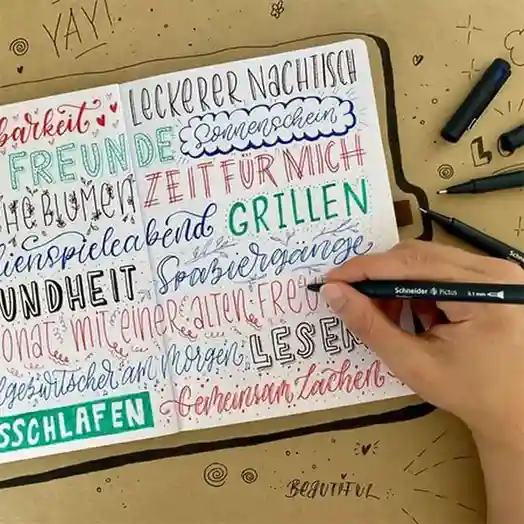 YAY!
LECKERER NACHTISCH
barkeit
Sonnenschein
FREUNDE
ZEIT FÜR MICH
BLUMEN
GRILLEN
lienspieleabend
Spaziergänge
UNDHEIT
onat mit einer alten Freu
LESEN
gezwitscher am Morgen
Gemeinsam Lachen
SSCHLAFEN
Schneider Pictus
0.1 mm
BEAUTIFUL